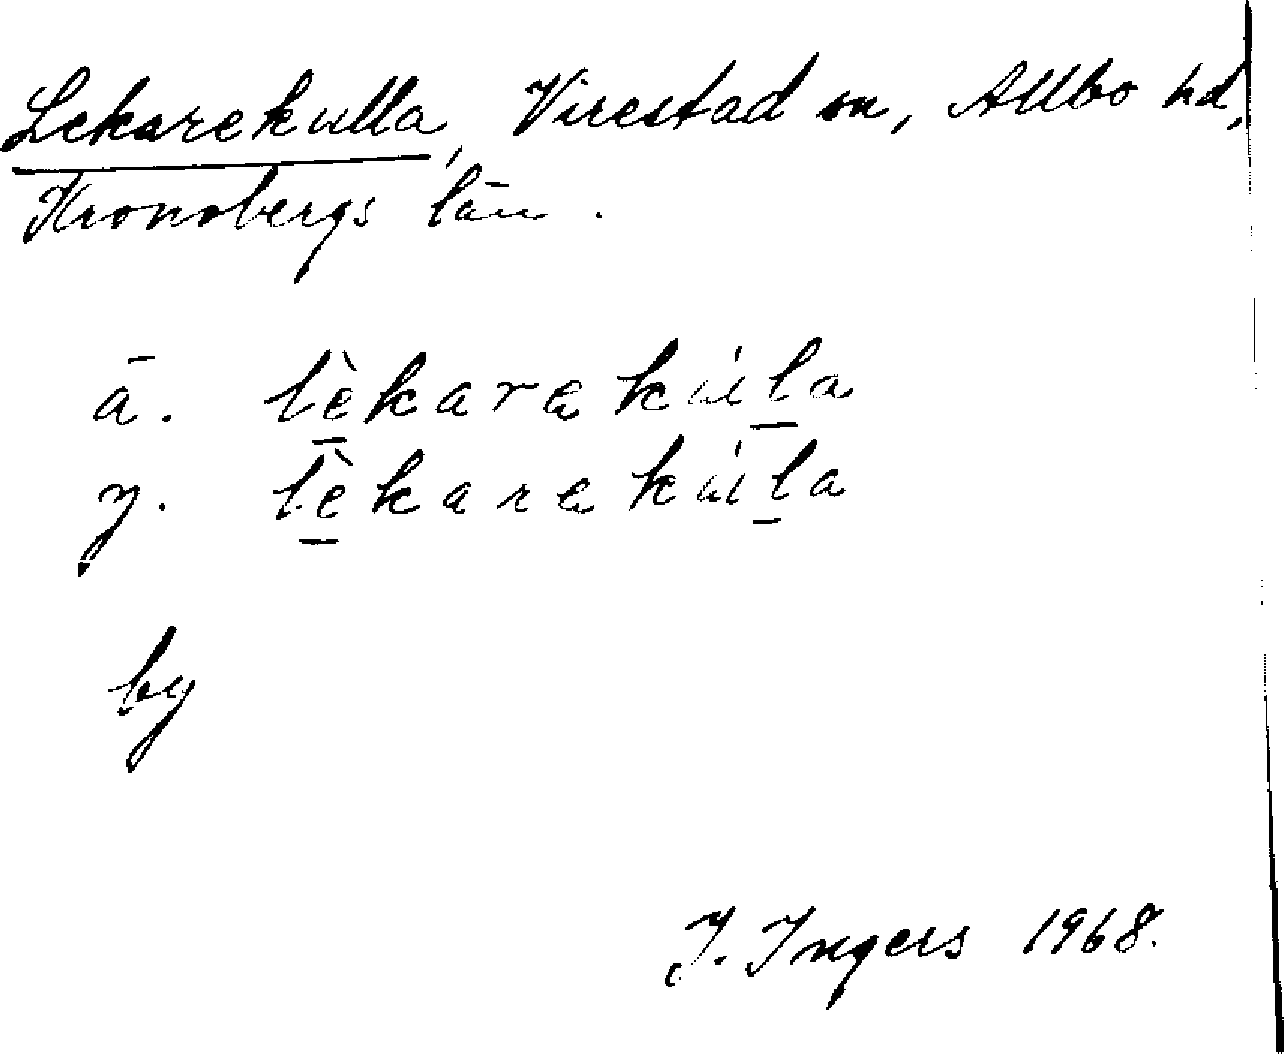 Lekarekulla, Virestad sn, Allbo hd,
Kronobergs län.
ä. lèkarakúla
y. lèkarakúla
by
J. Ingers 1968.